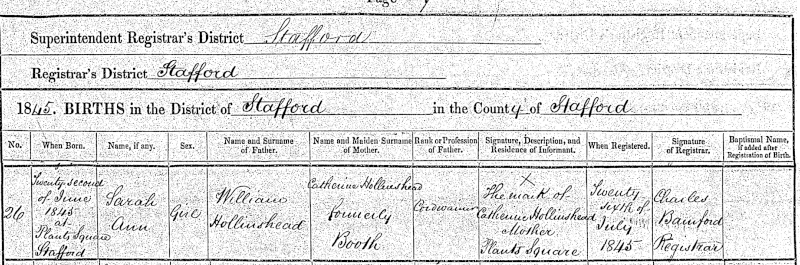 Page
Superintendent Registrar's District Stafford
Registrar's District Stafford
1845. BIRTHS in the District of Stafford in the County of Stafford
No. When Born. Name, if any. Sex. Name and Surname of Father. Name and Maiden Surname of Mother. Rank or Profession of Father. Signature, Description, and Residence of Informant. When Registered. Signature of Registrar. Baptismal Name, if added after Registration of Birth.
26
Twenty second
of June
1845
at
Plants Square
Stafford
Sarah
Ann
Girl
William
Hollinshead
Catherine Hollinshead
formerly
Booth
Cordwainer
X
The mark of
Catherine Hollinshead
Mother
Plants Square
Twenty
sixth of
July
1845
Charles
Bamford
Registrar